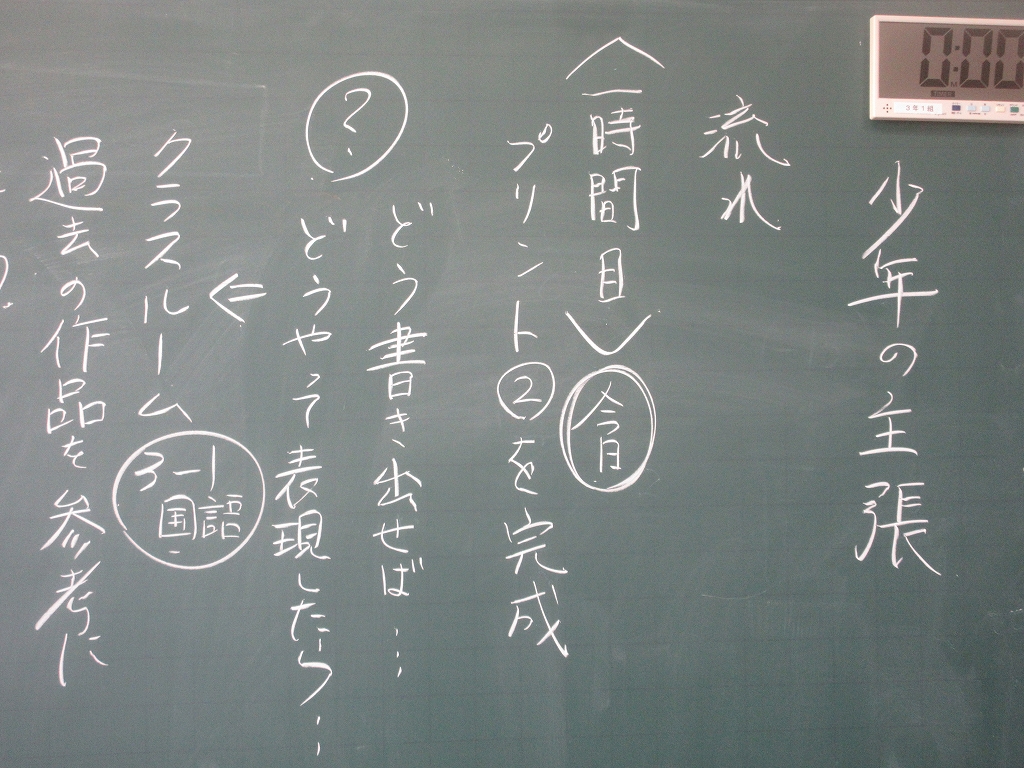 0:00
3年1組
少年の主張
流れ
〈一時間目〉今日
プリント②を完成
どう書き出せば…
?
どうやって表現したら…
⇐
クラスルーム 3-1国語
過去の作品を参考に